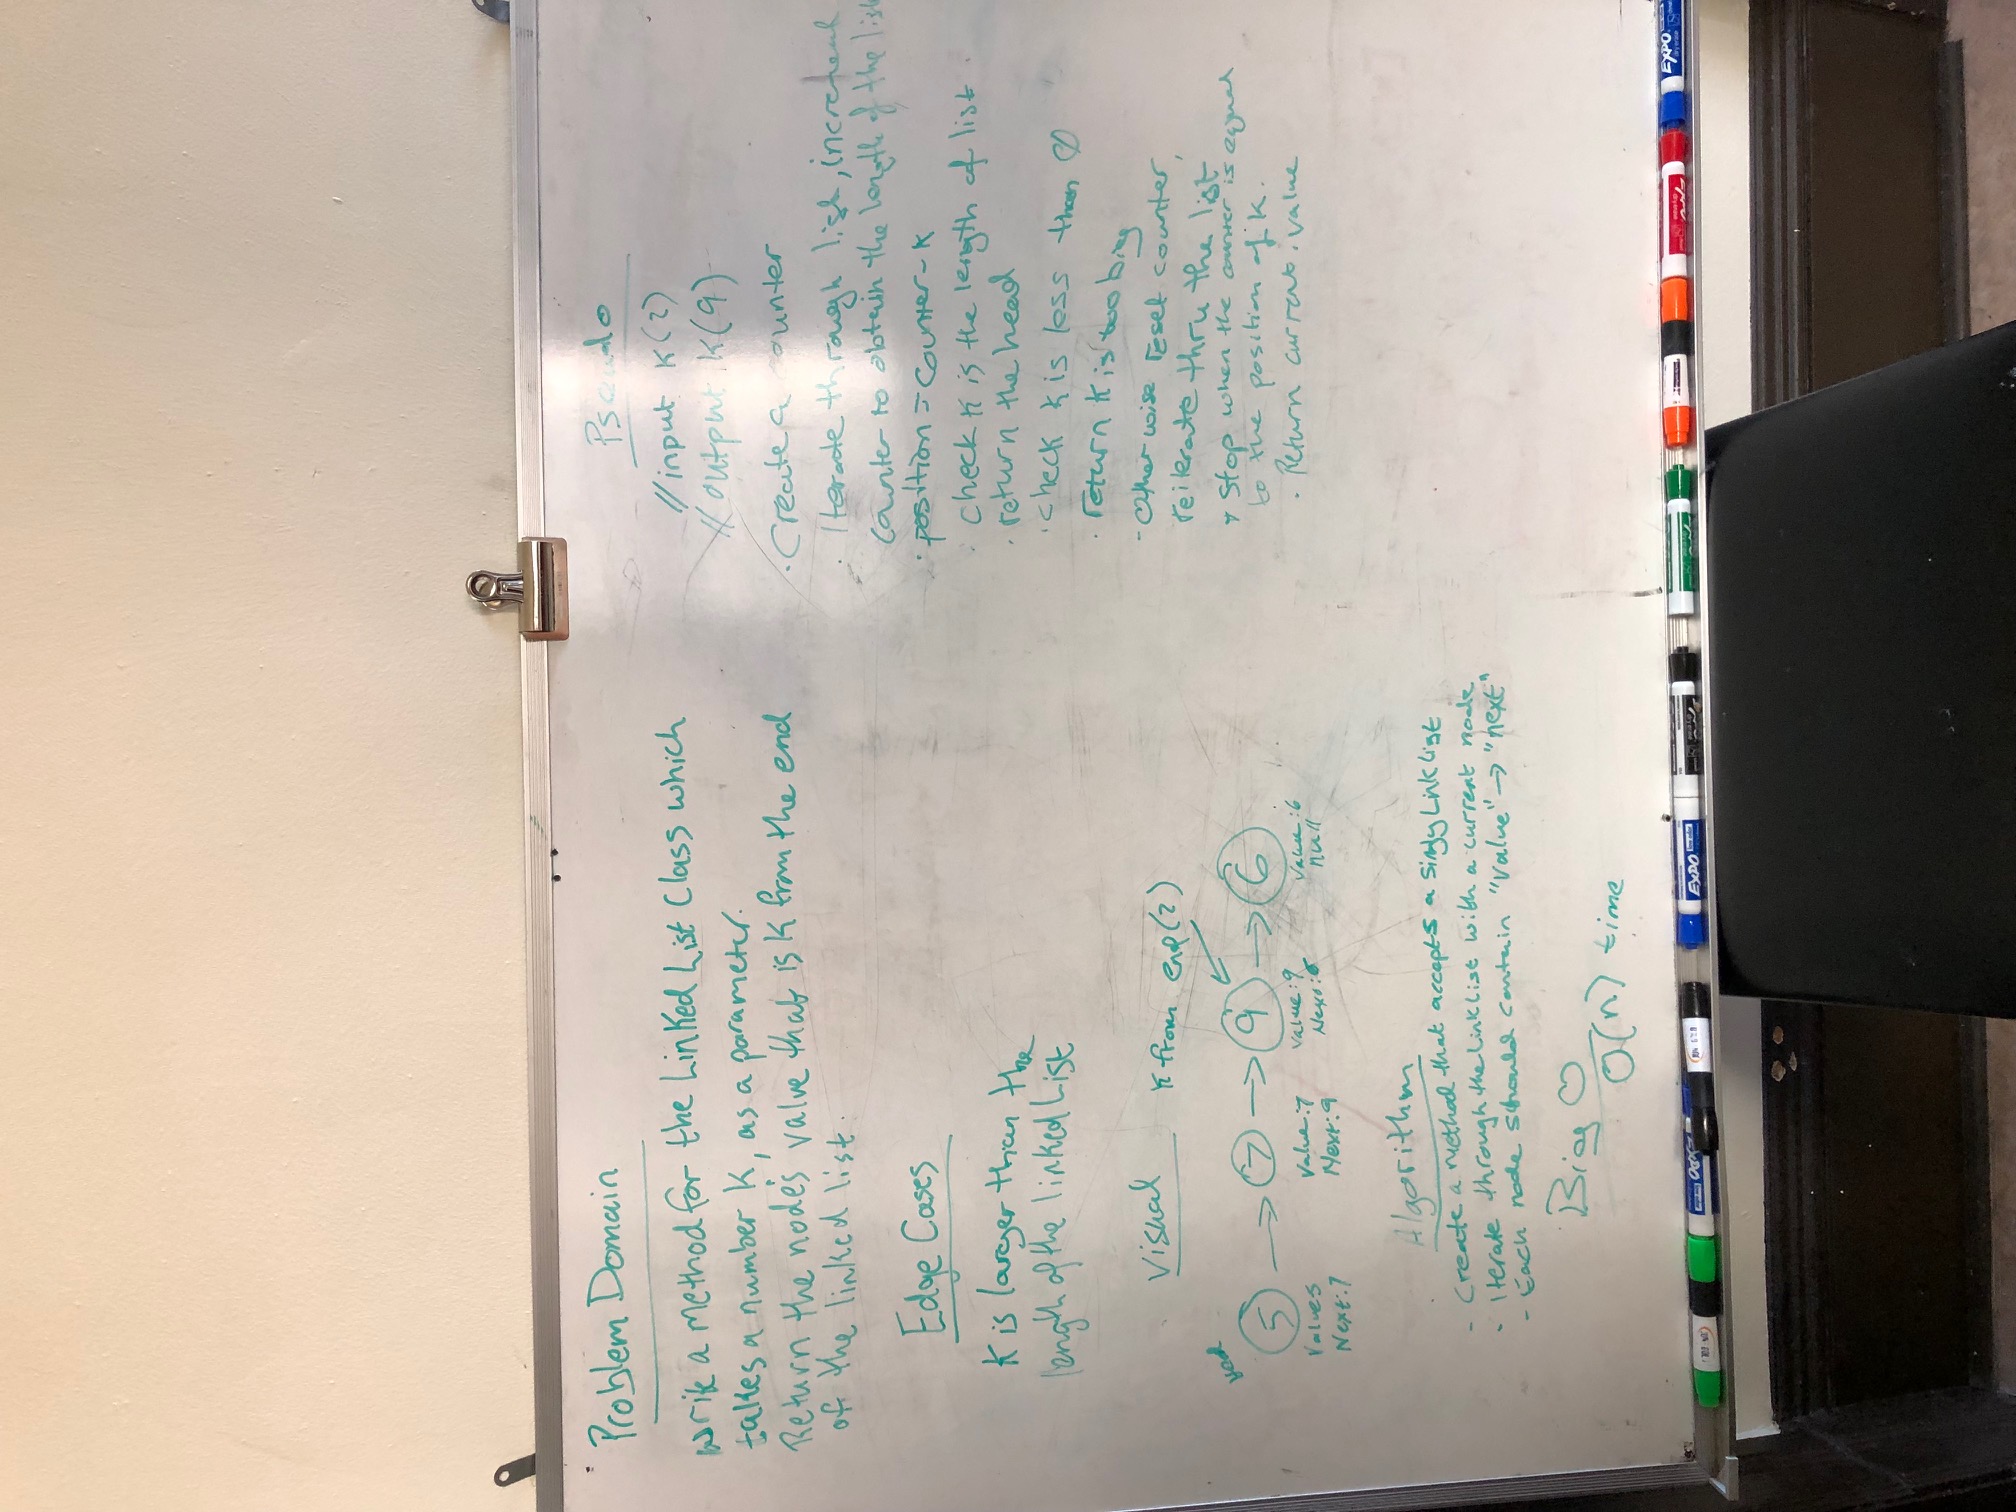 Problem Domain
write a method for the Linked List Class which
takes a number K, as a parameter.
Return the node's value that is K from the end
of the linked list.
Edge Cases
K is larger than the
length of the linked List
Visual
K from end(2)
head
5
7
9
6
Value 5
Next: 7
Value: 7
Next: 9
Value: 9
Next: 6
Value: 6
null
Algorithm
- Create a method that accepts a Singly Link List
- Iterate through the Link List with a current node
- Each node should contain "value" → "next"
Big O
O(n) time
Pseudo
// input K(2)
// output K(9)
· Create a counter
· Iterate through list, increment
counter to obtain the length of the list
· position = counter - K
· check K is the length of list
· return the head
· check K is less than 0
· return K is too big
- Otherwise reset counter,
reiterate thru the list
* Stop when the counter is equal
to the position of K.
· Return current.value
EXPO
EXPO
EXPO
dry erase